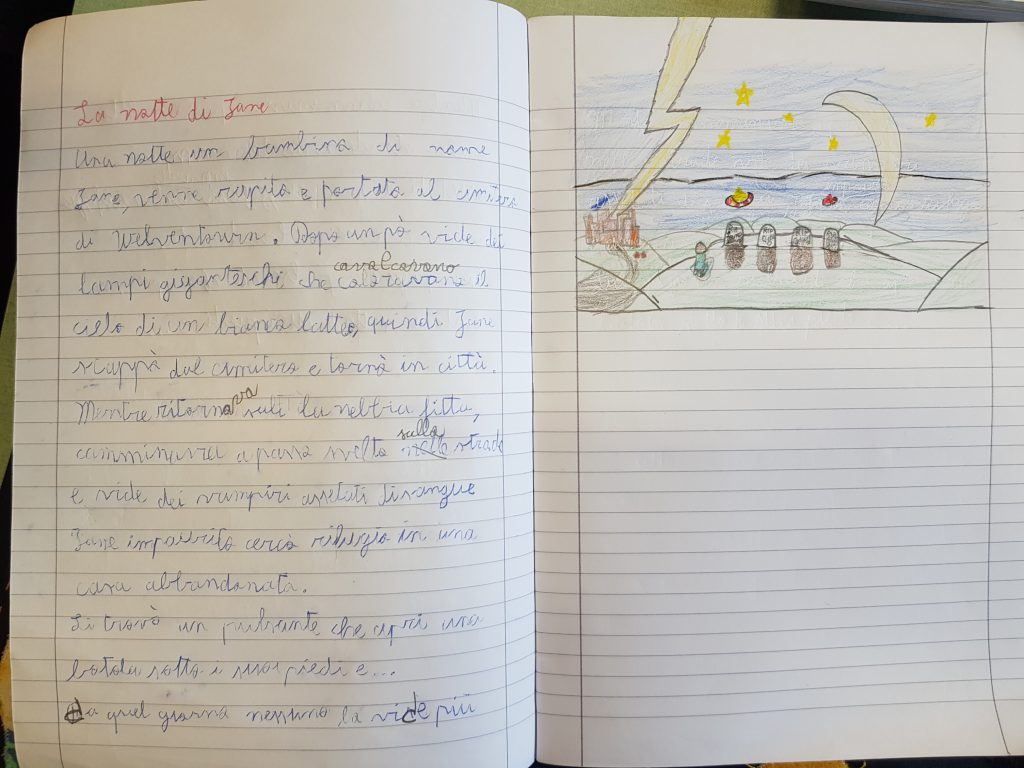 La notte di Jane
Una notte un bambina di nome
Jane, venne rapita e portata al cimitero
di Welventown. Dopo un pò vide dei
lampi giganteschi, che cavalcavano il
cielo di un bianco latteo, quindi Jane
scappò dal cimitero e tornò in città.
Mentre ritornava salì la nebbia fitta,
camminava a passo svelto sulla strada
e vide dei vampiri assetati di sangue
Jane impaurita cercò rifugio in una
casa abbandonata.
Lì trovò un pulsante che aprì una
botola sotto i suoi piedi e...
da quel giorno nessuno la vide più